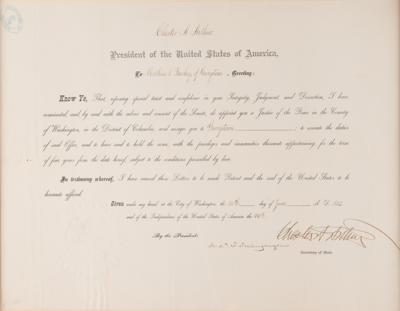 Chester A. Arthur
President of the United States of America,
To of Georgetown, Greeting:
Know Ye, That, reposing special trust and confidence in your Integrity, Judgment, and Discretion, I have
nominated, and, by and with the advice and consent of the Senate, do appoint you a Justice of the Peace in the County
of Washington, in the District of Columbia, and assign you to Georgetown, to execute the duties
of said Office, and to have and to hold the same, with the privileges and emoluments thereunto appertaining, for the term
of five years from the date hereof, subject to the conditions prescribed by law.
In testimony whereof, I have caused these Letters to be made Patent and the seal of the United States to be
hereunto affixed.
Given under my hand, at the City of Washington, the day of June, A. D. 1882,
and of the Independence of the United States of America the 106th.
Chester A. Arthur
By the President:
Secretary of State.